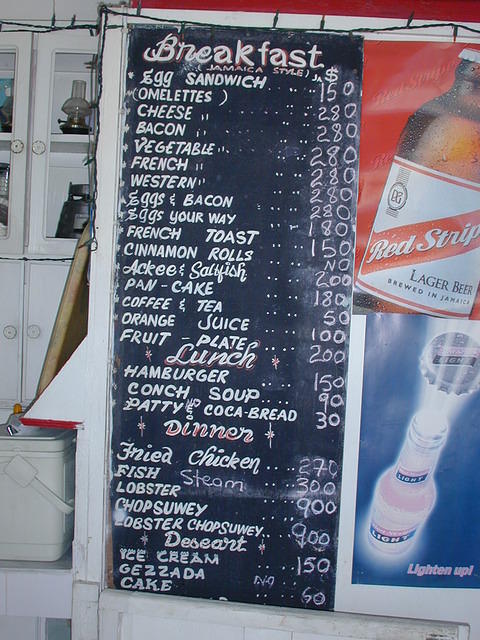 Breakfast
(JAMAICA STYLE) $
* Egg SANDWICH ... 150
(OMELETTES)
CHEESE " ... 280
BACON " ... 280
* VEGETABLE " ... 280
FRENCH " ... 280
WESTERN " ... 280
Eggs & BACON ... 280
Eggs YOUR WAY ... 180
FRENCH TOAST ... 150
CINNAMON ROLLS ... NO
Ackee & Saltfish ... 200
PAN-CAKE ... 180
COFFEE & TEA ... 50
ORANGE JUICE ... 100
FRUIT PLATE ... 200
* Lunch *
HAMBURGER ... 150
CONCH SOUP ... 90
PATTY & COCA-BREAD 30
* Dinner *
Fried Chicken .... 270
FISH Steam ... 300
LOBSTER ... 900
CHOPSUWEY
LOBSTER CHOPSUWEY ... 900
* Deseart *
ICE CREAM ... 150
GEZZADA NO
CAKE ... 60
Red Strip
LAGER BEER
BREWED IN JAMAICA
LIGHT
LIGHT
LIGHT
Lighten up!